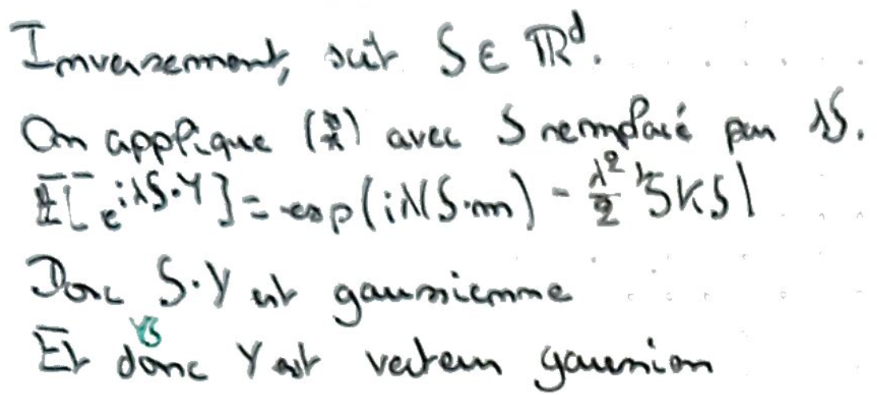 Inversement, soit S ∈ ℝᵈ.
On applique (*) avec S remplacé par λS.
𝔼[e^{iλS·Y}] = exp(iλ(S·m) - λ²/2 ᵗSKS)
Donc S·Y est gaussienne
∀S
Et donc Y est vecteur gaussien